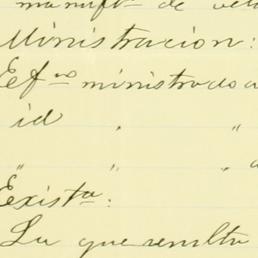 manuft. de vel
Ministracion:
Eefos ministrado a
id " "
" " a
Exista:
La que resulta